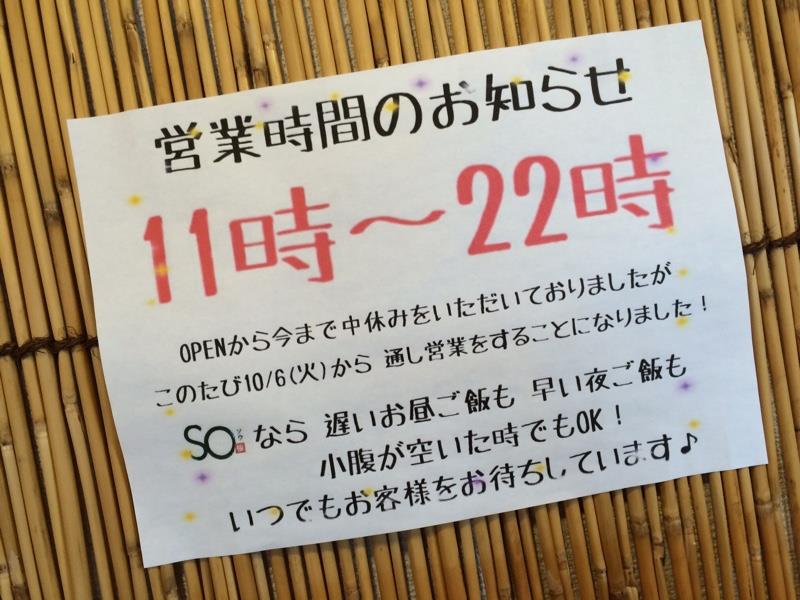 営業時間のお知らせ
11時〜22時
OPENから今まで中休みをいただいておりましたが
このたび10/6(火)から 通し営業をすることになりました!
SO ソウ なら 遅いお昼ご飯も 早い夜ご飯も
小腹が空いた時でもOK!
いつでもお客様をお待ちしています♪